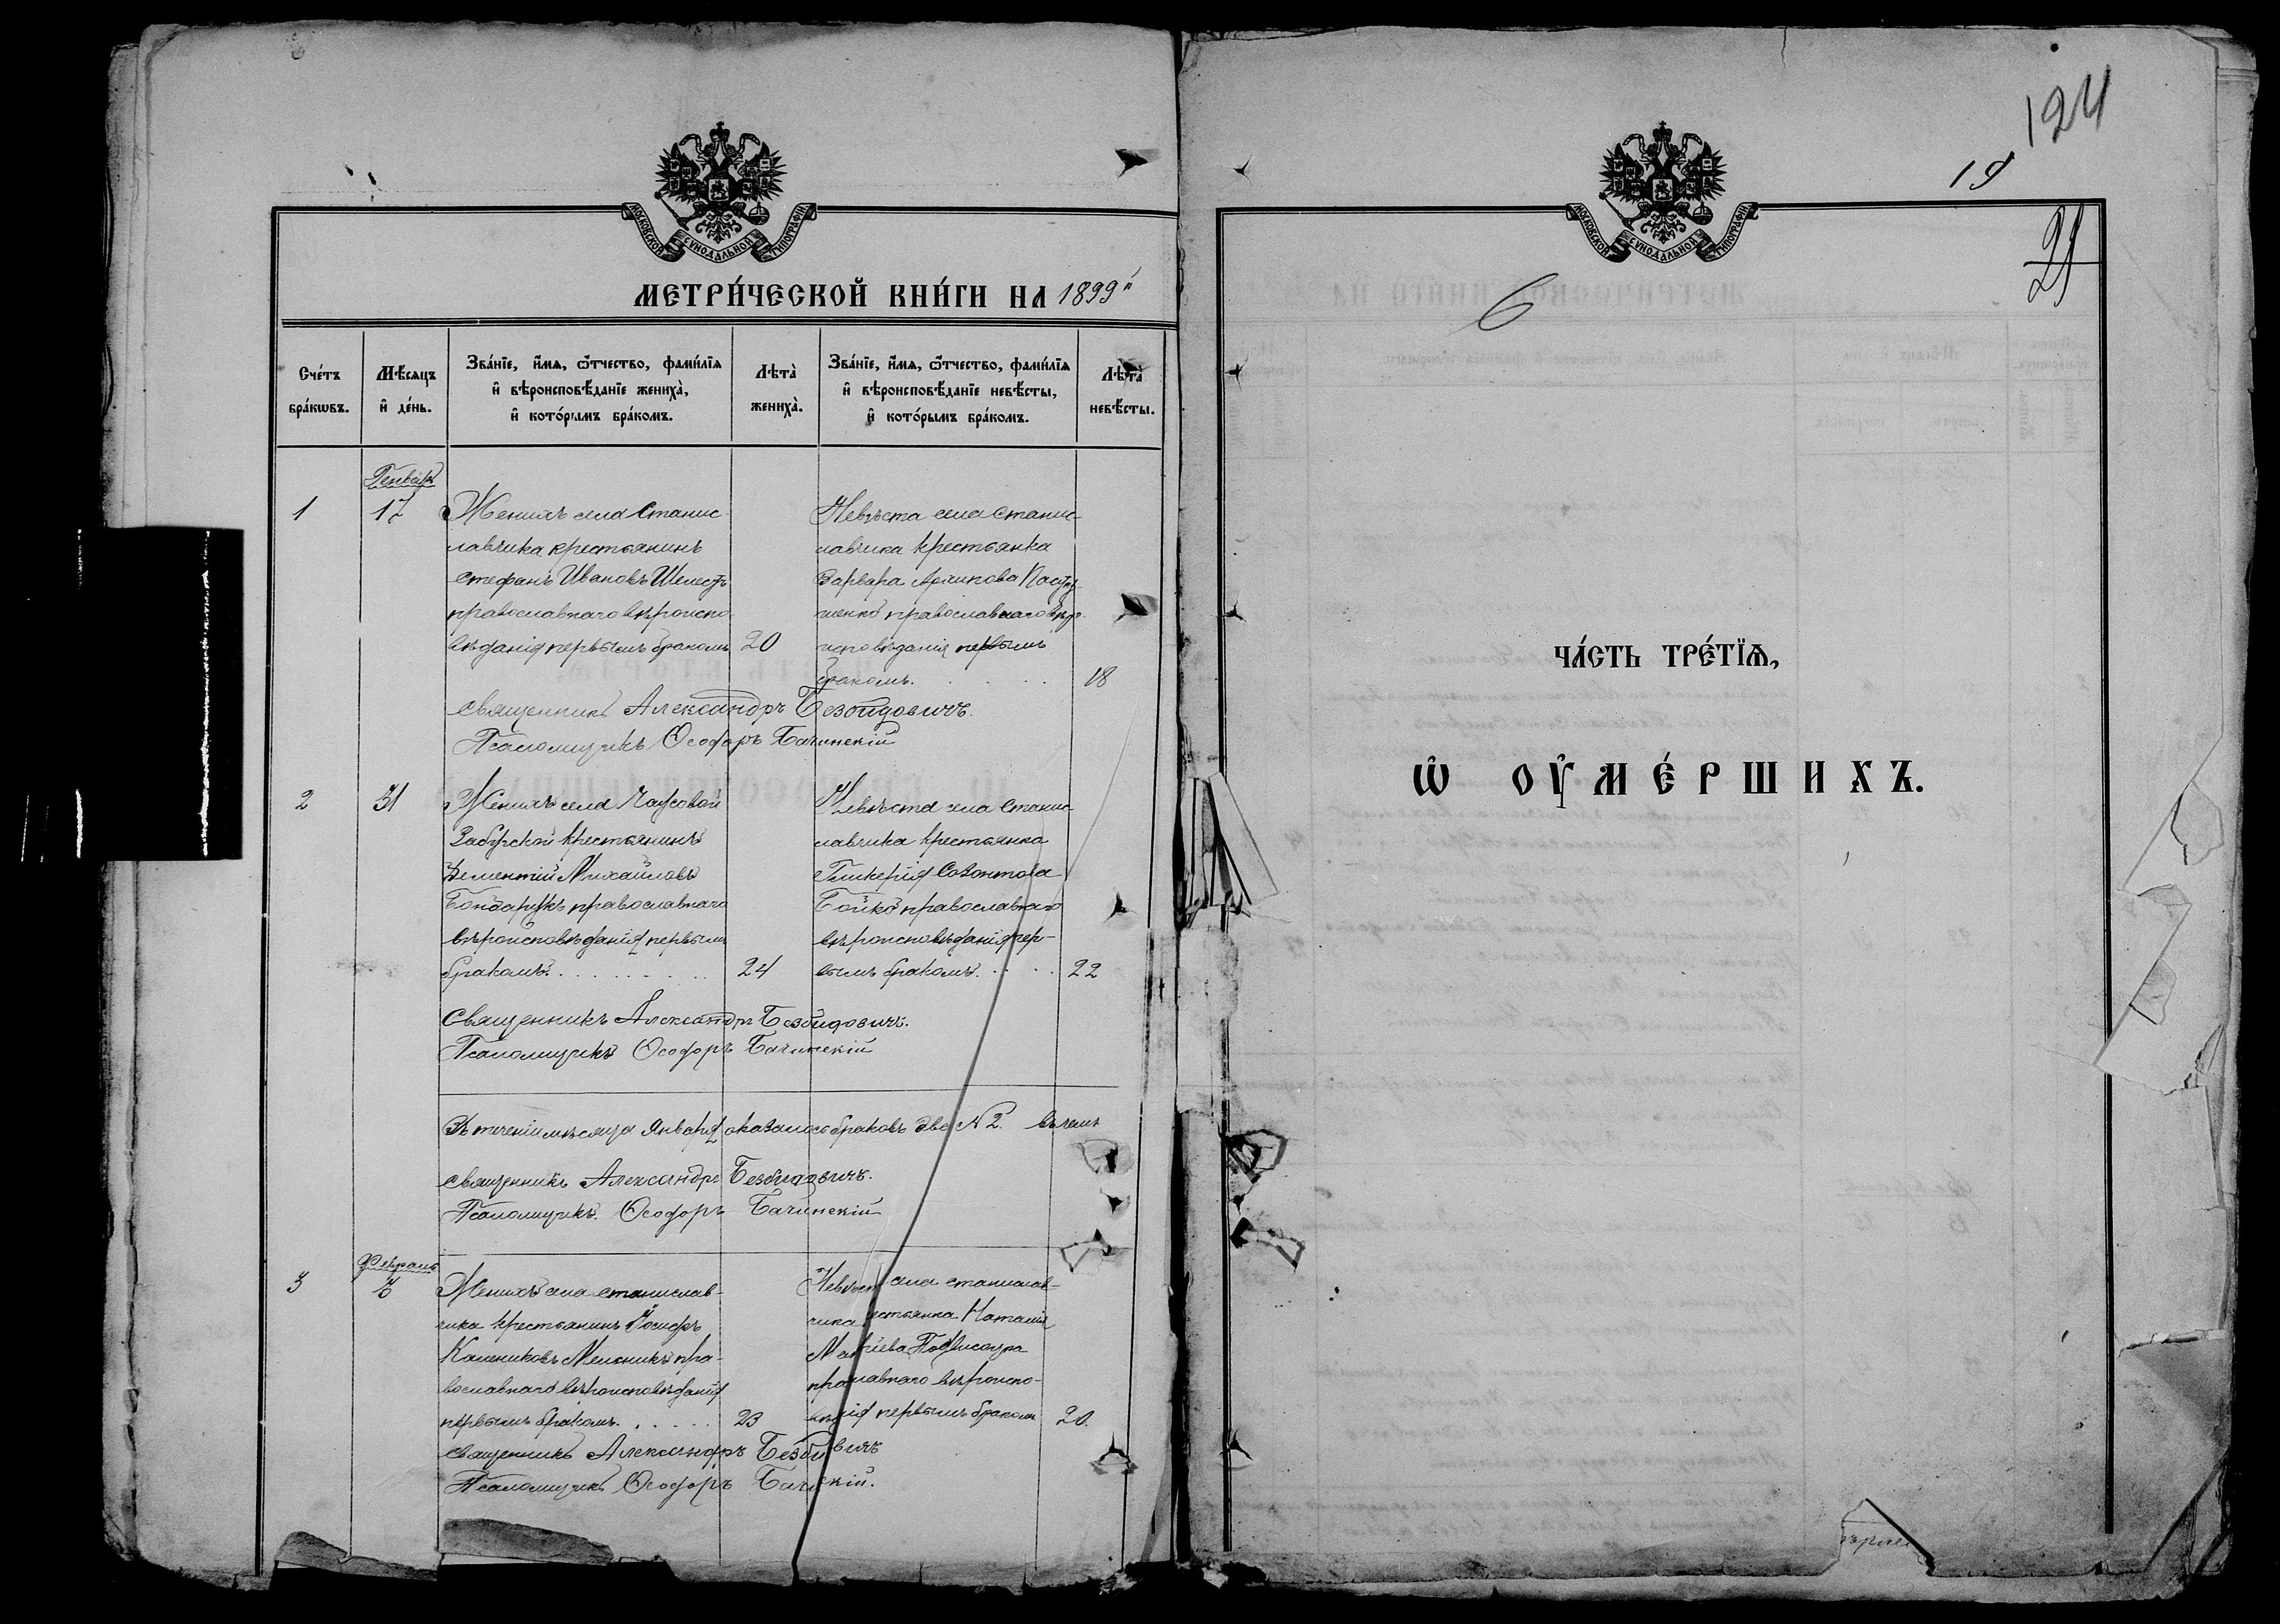 МОСКОВСКОЙ СУНОДАЛЬНОЙ ТИПОГРАФІИ
МЕТРИ́ЧЕСКОЙ КНИ́ГИ НА 1899й
Сче́тъ бра́кѡвъ.
Мѣ́сяцъ и҆ де́нь.
Зва́нїе, и҆́мѧ, ѻ҆́тчество, фами́лїѧ и҆ вѣроисповѣ́данїе жениха̀, и҆ кото́рымъ бра́комъ.
Лѣта̀ жениха̀.
Зва́нїе, и҆́мѧ, ѻ҆́тчество, фами́лїѧ и҆ вѣроисповѣ́данїе невѣ́сты, и҆ кото́рымъ бра́комъ.
Лѣта̀ невѣ́сты.
Генварь
1 17
Женихъ села Станис-
лавчика крестьянинъ
Стефанъ Ивановъ Шелестъ
православнаго вѣроиспо-
вѣданія первымъ бракомъ 20
Невѣста села Станис-
лавчика крестьянка
Варвара Архипова
православнаго вѣро-
исповѣданія первымъ
бракомъ. 18
Священникъ Александръ Безбидовичъ.
Псаломщикъ Ѳеодоръ Бачинскій
2 31
Женихъ села Чаусовой
крестьянинъ
Дементій Михайловъ
Бондарукъ православнаго
вѣроисповѣданія первымъ
бракомъ. 24
Невѣста села Станис-
лавчика крестьянка
Гликерія Созонтова
Бойко православнаго
вѣроисповѣданія пер-
вымъ бракомъ. 22
Священникъ Александръ Безбидовичъ.
Псаломщикъ Ѳеодоръ Бачинскій
Въ теченіи мѣсяца Января оказалось браковъ два № 2. въ чемъ
Священникъ Александръ Безбидовичъ.
Псаломщикъ Ѳеодоръ Бачинскій
Февраль
3
Женихъ села Станислав-
чика крестьянинъ Іосифъ
Мельникъ пра-
вославнаго вѣроисповѣданія
первымъ бракомъ. 23
села Станислав-
чика Наталія
первымъ бракомъ 20.
Священникъ Александръ
Псаломщикъ Ѳеодоръ
124
19
МОСКОВСКОЙ СУНОДАЛЬНОЙ ТИПОГРАФІИ
6
ЧА́СТЬ ТРЕ́ТЇѦ,
Ѡ҆ ОУ҆МЕ́РШИХЪ.